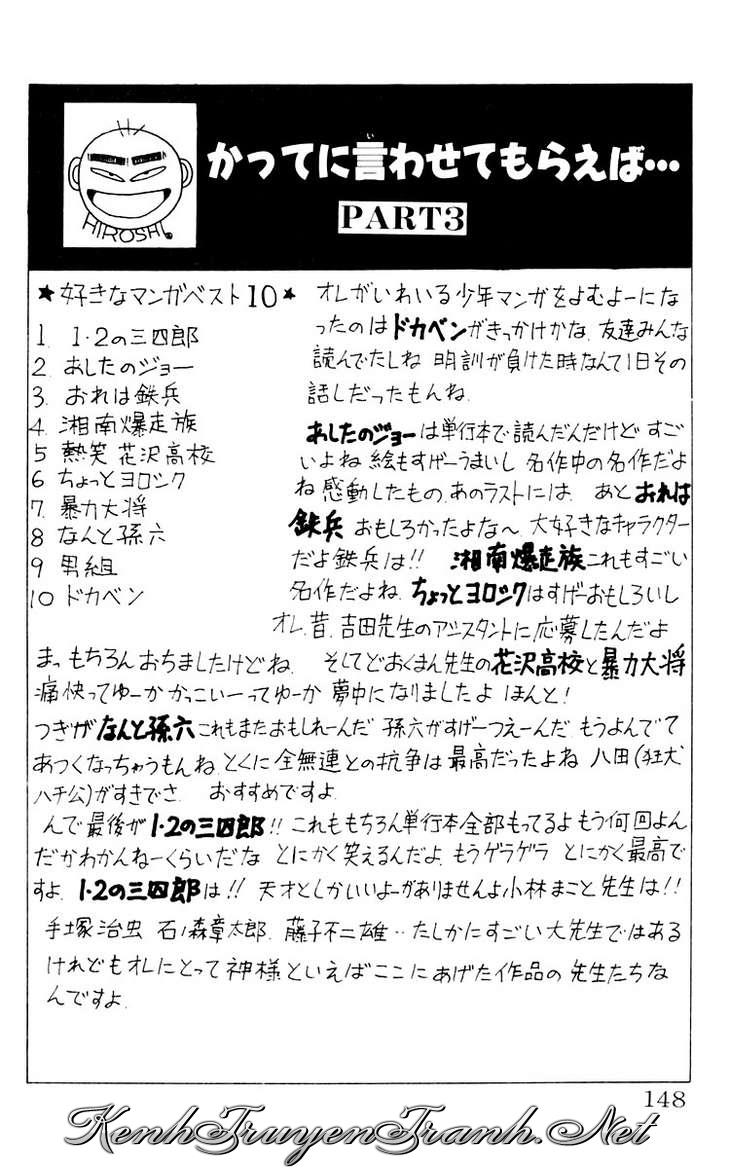 かってに言わせてもらえば…
い
PART3
HIROSHI.
★好きなマンガベスト10★
1. 1・2の三四郎
2. あしたのジョー
3 おれは鉄兵
4. 湘南爆走族
5 熱笑 花沢高校
6 ちょっとヨロシク
7. 暴力大将
8 なんと孫六
9 男組
10 ドカベン
オレがいわいる少年マンガをよむよーにな
ったのはドカベンがきっかけかな. 友達みんな
読んでたしね 明訓が負けた時なんて1日その
話しだったもんね.
あしたのジョーは単行本で読んだんだけど すご
いよね 絵もすげーうまいし 名作中の名作だよ
ね 感動したもの、あのラストには. あと おれは
鉄兵 おもしろかったよな〜. 大好きなキャラクター
だよ鉄兵は!! 湘南爆走族これもすごい
名作だよね. ちょっとヨロシクはすげーおもしろいし
オレ、昔、吉田先生のアシスタントに応募したんだよ
まっ もちろん おちましたけどね. そしてどおくまん先生の花沢高校と暴力大将
痛快ってゆーか かっこいーってゆーか 夢中になりましたよ ほんと!
つぎが なんと孫六 これもまたおもしれーんだ 孫六がすげーつえーんだ もうよんでて
あつくなっちゃうもんね. とくに 全無連との抗争は最高だったよね 八田(狂犬
ハチ公)がすきでさ. おすすめですよ
んで最後が 1・2の三四郎!! これももちろん単行本全部もってるよ もう何回よん
だかわかんねーくらいだな とにかく笑えるんだよ. もうゲラゲラ とにかく最高で
すよ. 1・2の三四郎は!! 天才としかいいよーがありませんよ小林まこと先生は!!
手塚治虫 石ノ森章太郎. 藤子不二雄‥たしかにすごい大先生ではある
けれどもオレにとって神様といえばここにあげた作品の先生たちな
んですよ.
148
KenhTruyenTranh.Net